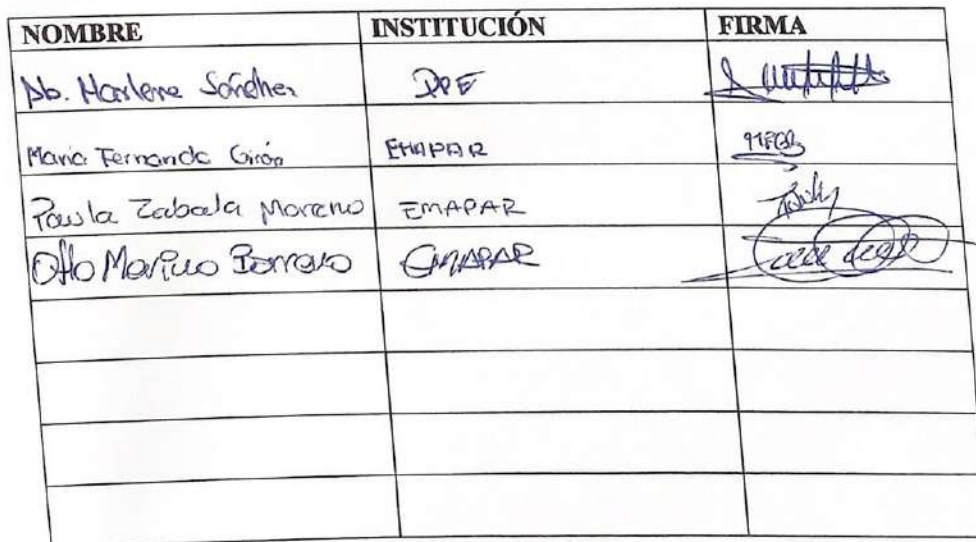 NOMBRE INSTITUCIÓN FIRMA
Ab. Marlene Sánchez DPE
Maria Fernanda Girón EMAPAR MFGB
Paula Zabala Moreno EMAPAR
Otto Marino Borrero EMAPAR